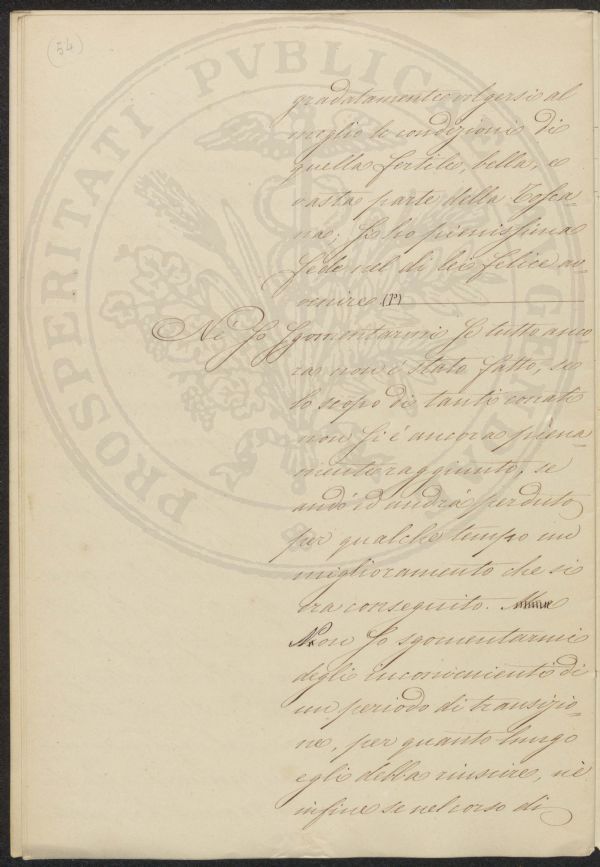 (54)
gradatamente volgersi al
meglio le condizioni di
quella fertile, bella, e
vasta parte della Tosca-
na; ho pienissima
fede nel di lei felice av-
venire (P)
Nè so sgomentarmi se tutto anco
ra non è stato fatto, se
lo scopo di tanti conati
non si è ancora piena-
mente raggiunto, se
andò ed andrà perduto
per qualche tempo un
miglioramento che si
era conseguito.
Non so sgomentarmi
degli inconvenienti di
un periodo di transizio-
ne, per quanto lungo
egli debba riuscire, nè
infine se nel corso di
PROSPERITATI PVBLICAE AVGENDAE